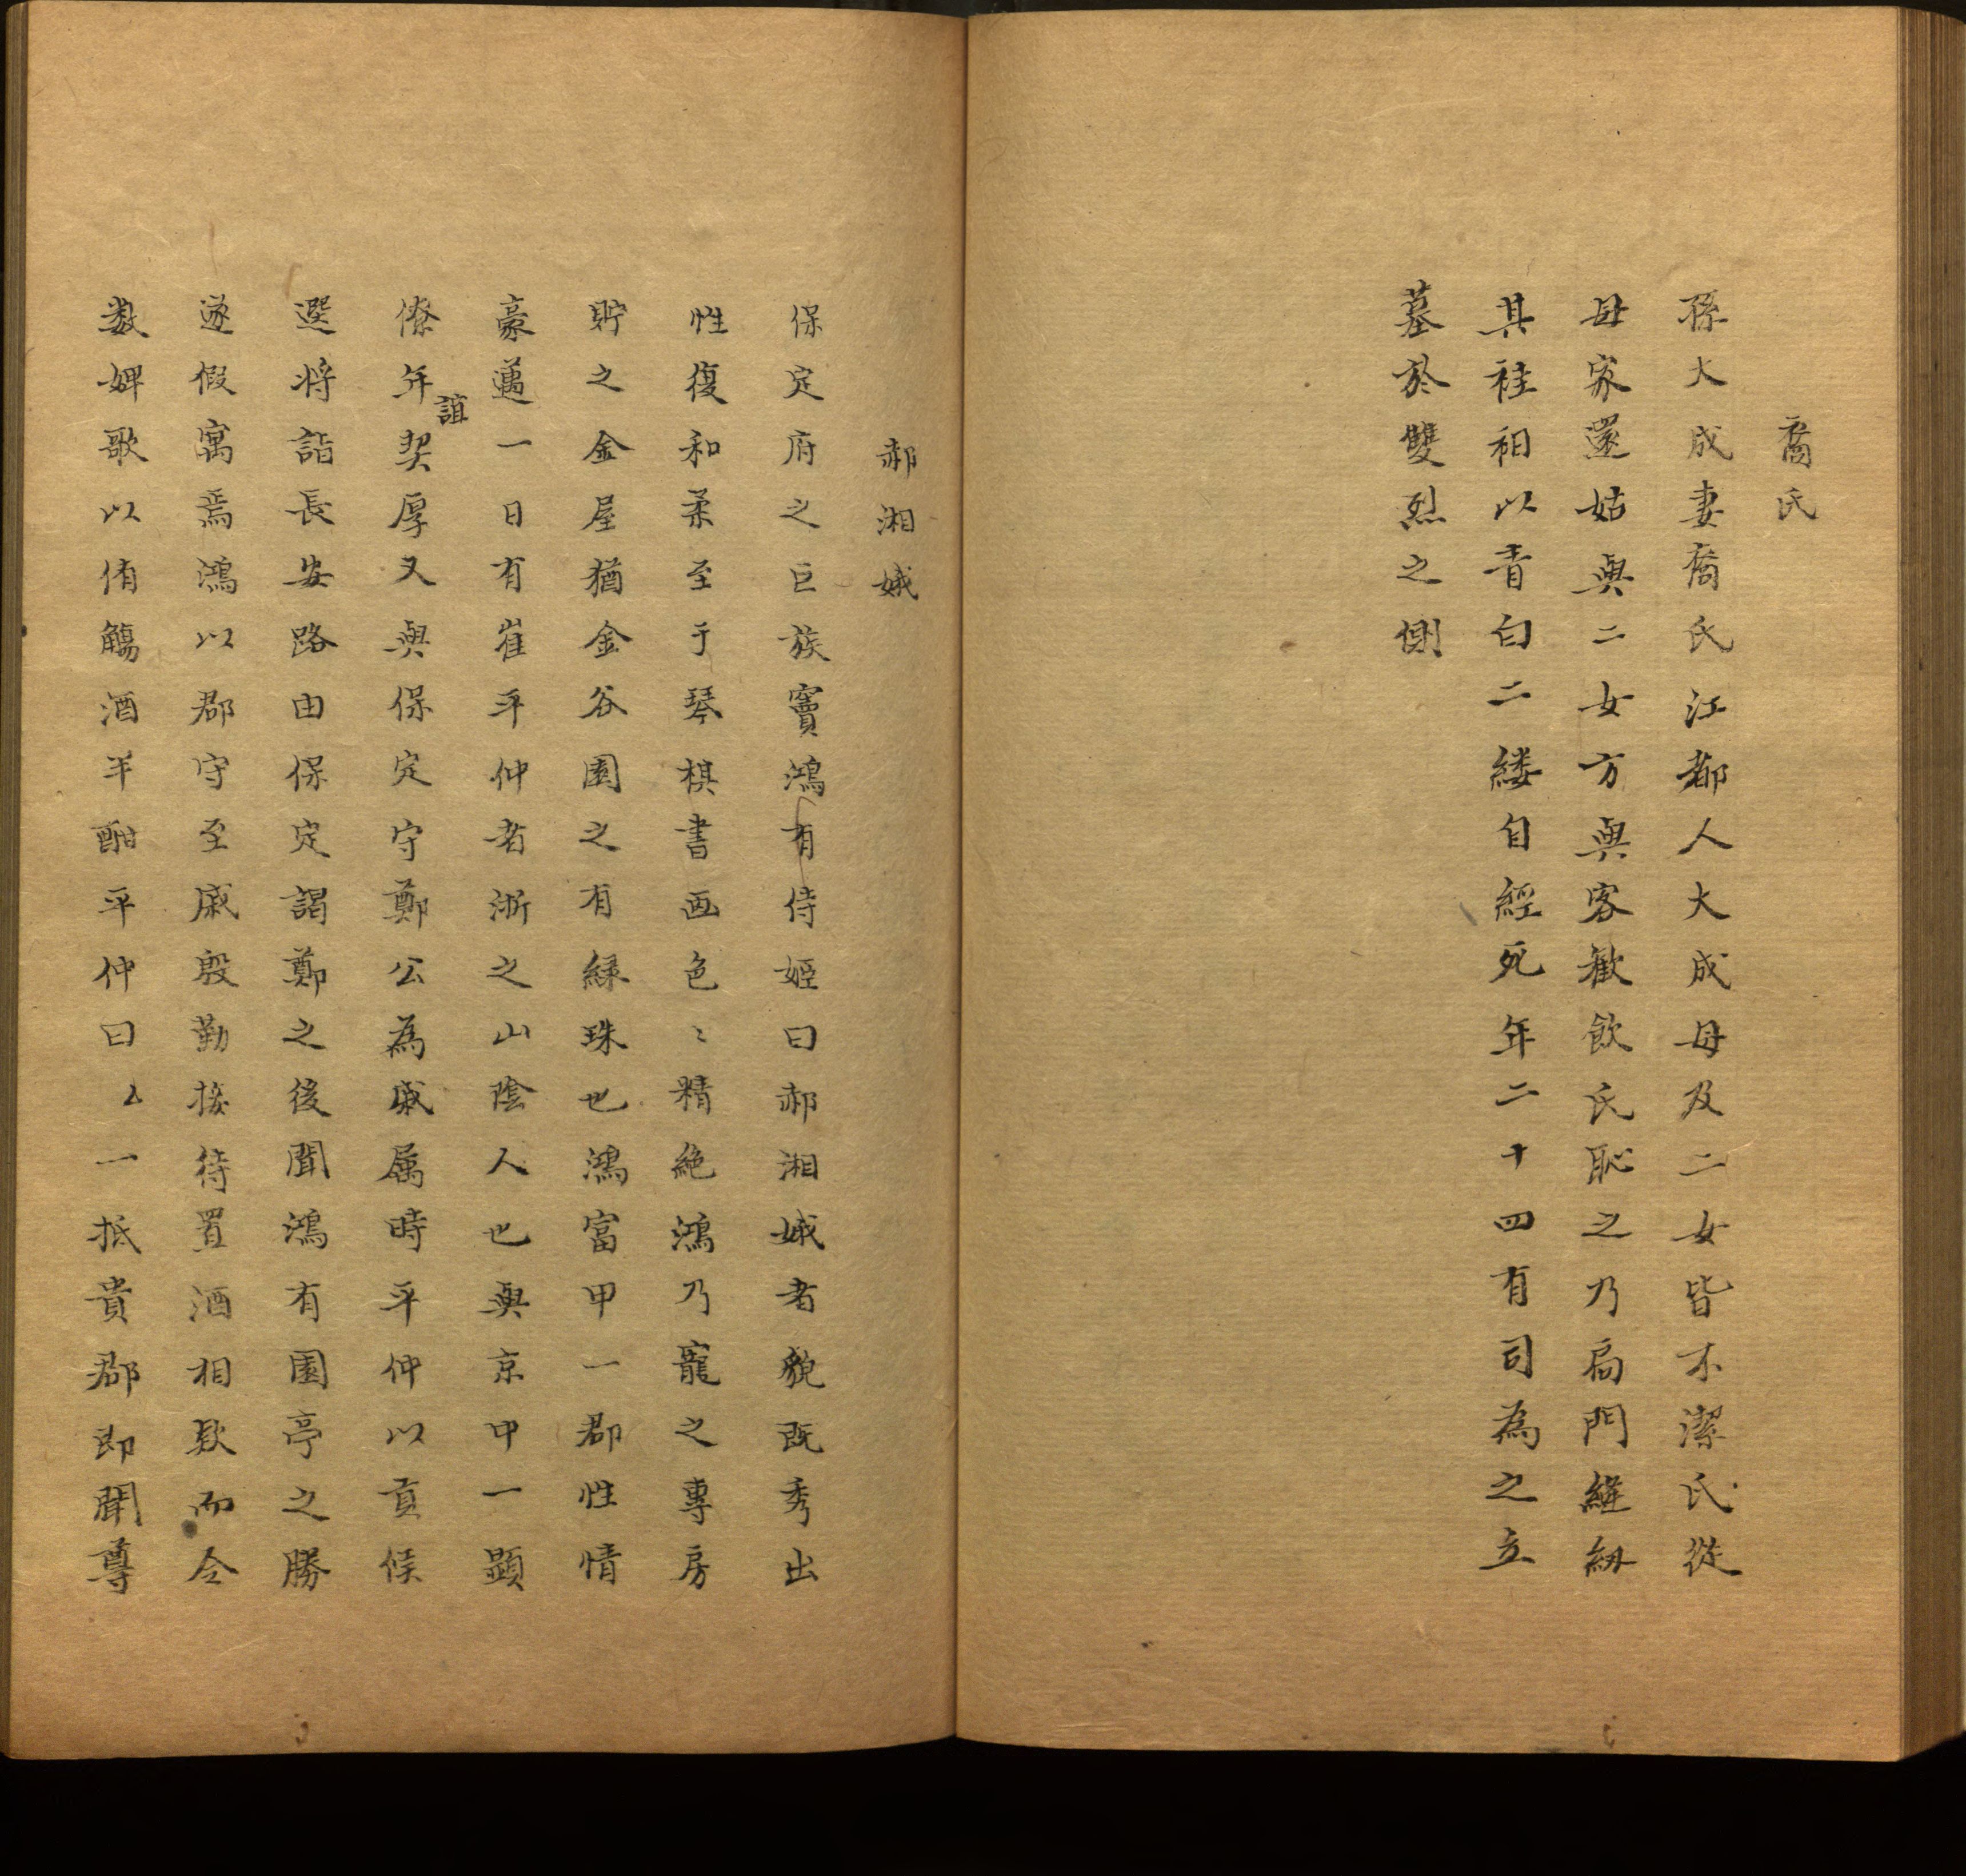 喬氏
孫大成妻喬氏江都人大成母及二女皆不潔氏從
母家還姑與二女方與客歡飲氏恥之乃扃門縫紉
其袿袹以青白二縷自經死年二十四有司為之立
墓於雙烈之側
郝湘娥
保定府之巨族竇鴻有侍姬曰郝湘娥者貌既秀出
性復和柔至于琴棋書画色〻精絶鴻乃寵之專房
貯之金屋猶金谷園之有緑珠也鴻富甲一郡性情
豪邁一日有崔平仲者浙之山陰人也與京中一顕
僚年誼契厚又與保定守鄭公為戚属時平仲以貢候
選将詣長安路由保定謁鄭之後聞鴻有園亭之勝
遂假寓焉鴻以郡守至戚殷勤接待置酒相欵而令
数婢歌以侑觴酒半酣平仲曰厶一抵貴郡即聞尊